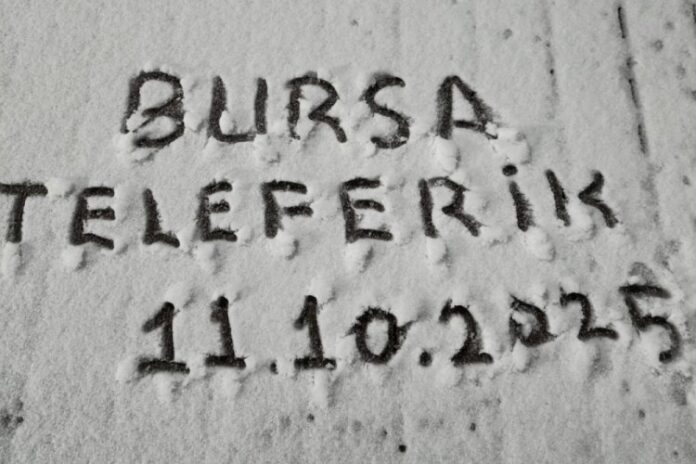 BURSA
TELEFERİK
11.10.2025